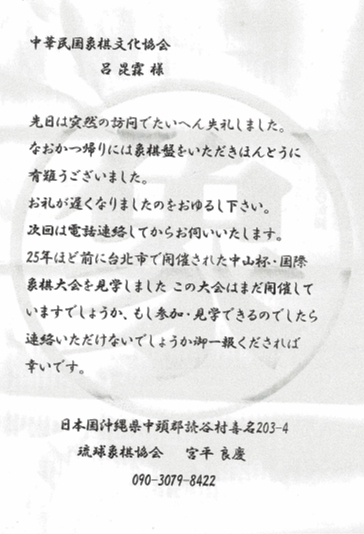 中華民国象棋文化協会
呂 昆霖 様
先日は突然の訪問でたいへん失礼しました。
なおかつ帰りには象棋盤をいただきほんとうに
有難うございました。
お礼が遅くなりましたのをおゆるし下さい。
次回は電話連絡してからお伺いいたします。
25年ほど前に台北市で開催された中山杯・国際
象棋大会を見学しました この大会はまだ開催して
いますでしょうか、もし参加・見学できるのでしたら
連絡いただけないでしょうか御一報くだされば
幸いです。
日本国沖縄県中頭郡読谷村喜名203-4
琉球象棋協会 宮平 良慶
090-3079-8422